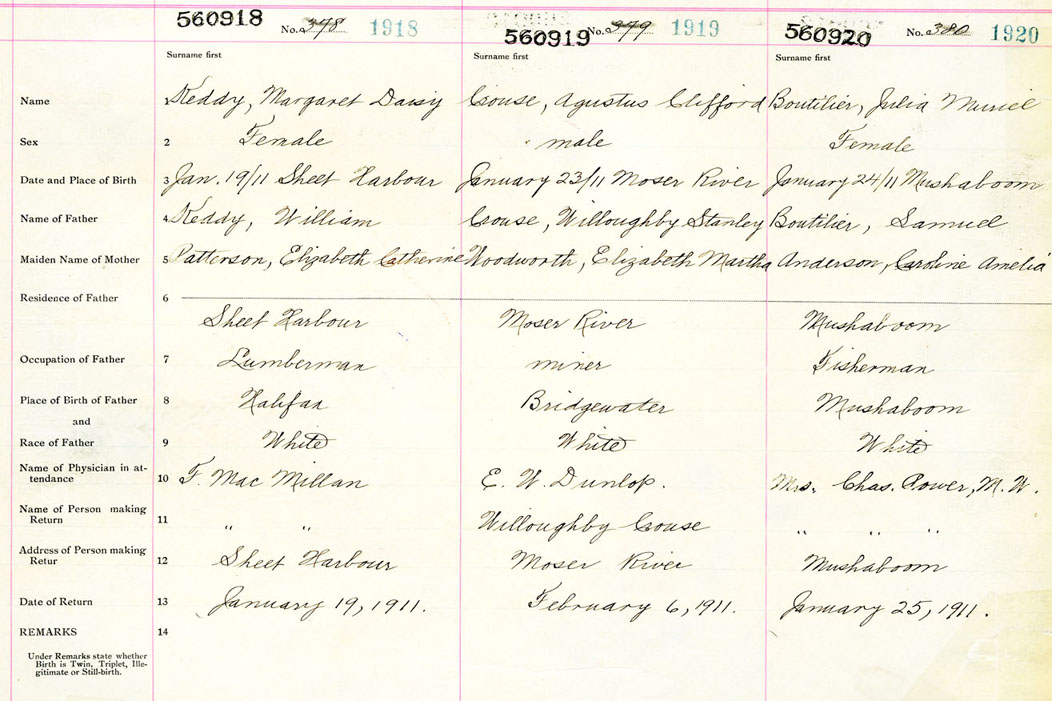 560918 No. 378 1918 560919 No. 379 1919 560920 No. 380 1920
Surname first Surname first Surname first
Name 1 Keddy, Margaret Daisy Couse, Agustus Clifford Boutilier, Julia Muriel
Sex 2 Female male Female
Date and Place of Birth 3 Jan. 19/11 Sheet Harbour January 23/11 Moser River January 24/11 Mushaboom
Name of Father 4 Keddy, William Couse, Willoughby Stanley Boutilier, Samuel
Maiden Name of Mother 5 Patterson, Elizabeth Catherine Woodworth, Elizabeth Martha Anderson, Caroline Amelia
Residence of Father 6
Sheet Harbour Moser River Mushaboom
Occupation of Father 7 Lumberman miner Fisherman
Place of Birth of Father 8 Halifax Bridgewater Mushaboom
and
Race of Father 9 White White White
Name of Physician in at-
tendance 10 F. Mac Millan E. W. Dunlop. Mrs. Chas. Power, M. W.
Name of Person making
Return 11 " " Willoughby Couse " " "
Address of Person making
Retur 12 Sheet Harbour Moser River Mushaboom
Date of Return 13 January 19, 1911. February 6, 1911. January 25, 1911.
REMARKS 14
Under Remarks state whether
Birth is Twin, Triplet, Ille-
gitimate or Still-birth.